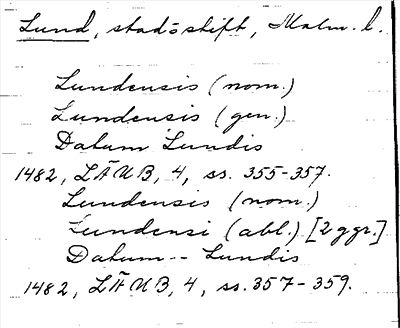 Lund, stad o. stift, Malm. l.
Lundensis (nom.)
Lundensis (gen.)
Datum Lundis
1482, LÄUB, 4, ss. 355-357.
Lundensis (nom.)
Lundensi (abl.) [2 ggr.]
Datum -- Lundis
1482, LÄUB, 4, ss. 357-359.